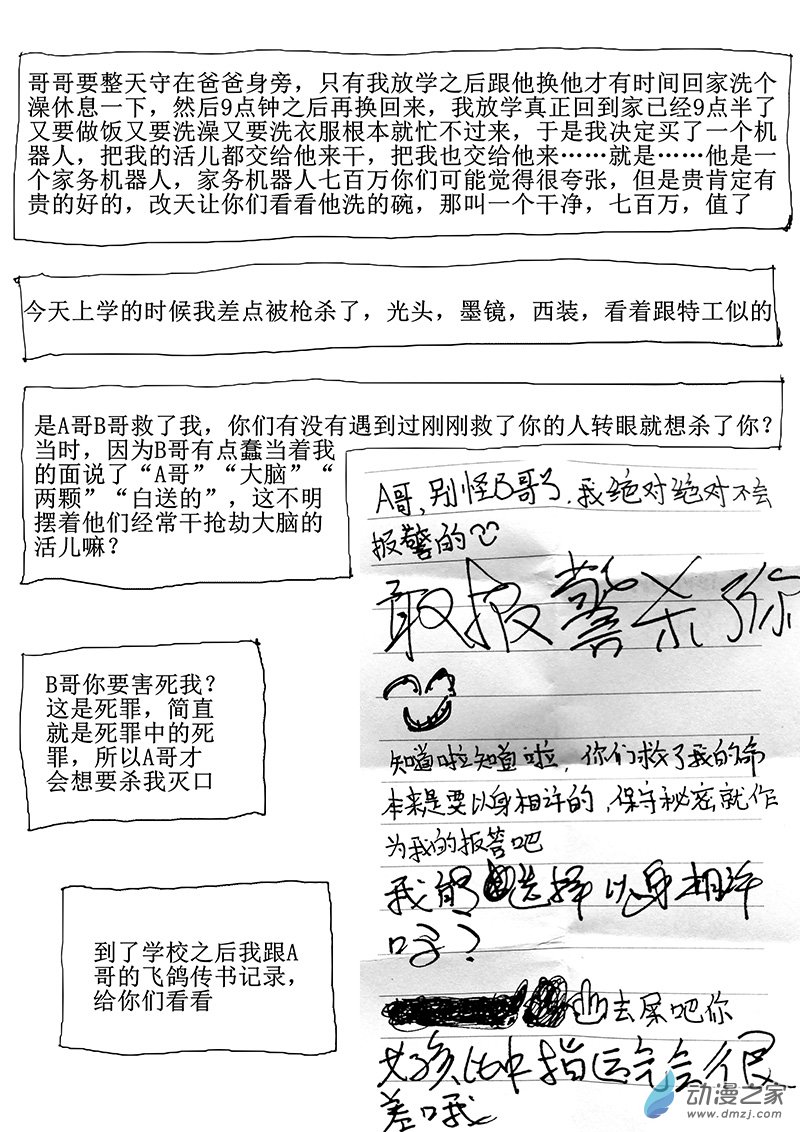 哥哥要整天守在爸爸身旁，只有我放学之后跟他换他才有时间回家洗个
澡休息一下，然后9点钟之后再换回来，我放学真正回到家已经9点半了
又要做饭又要洗澡又要洗衣服根本就忙不过来，于是我决定买了一个机
器人，把我的活儿都交给他来干，把我也交给他来……就是……他是一
个家务机器人，家务机器人七百万你们可能觉得很夸张，但是贵肯定有
贵的好的，改天让你们看看他洗的碗，那叫一个干净，七百万，值了
今天上学的时候我差点被枪杀了，光头，墨镜，西装，看着跟特工似的
是A哥B哥救了我，你们有没有遇到过刚刚救了你的人转眼就想杀了你？
当时，因为B哥有点蠢当着我
的面说了“A哥”“大脑”“
两颗”“白送的”，这不明
摆着他们经常干抢劫大脑的
活儿嘛？
B哥你要害死我？
这是死罪，简直
就是死罪中的死
罪，所以A哥才
会想要杀我灭口
到了学校之后我跟A
哥的飞鸽传书记录，
给你们看看
A哥，别怪B哥了，我绝对绝对不会
报警的
敢报警杀了你
知道啦知道啦，你们救了我的命
本来是要以身相许的，保守秘密就作
为我的报答吧
我能选择以身相许
吗？
去屎吧你
女孩比中指运气会很
差哦
动漫之家
www.dmzj.com